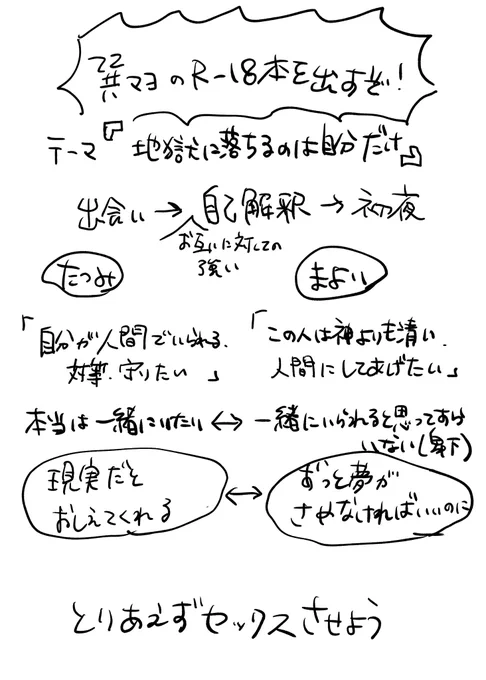 巽マヨのR-18本を出すぞ!
テーマ『地獄に落ちるのは自分だけ』
出会い→自己解釈→初夜
お互いに対しての
強い
たつみ
まよい
「自分が人間でいられる、
対等、守りたい」
「この人は神よりも清い、
人間にしてあげたい」
本当は一緒にいたい↔一緒にいられると思ってすら
いない(卑下)
現実だと
おしえてくれる
↔
ずっと夢が
さめなければいいのに
とりあえずセックスさせよう